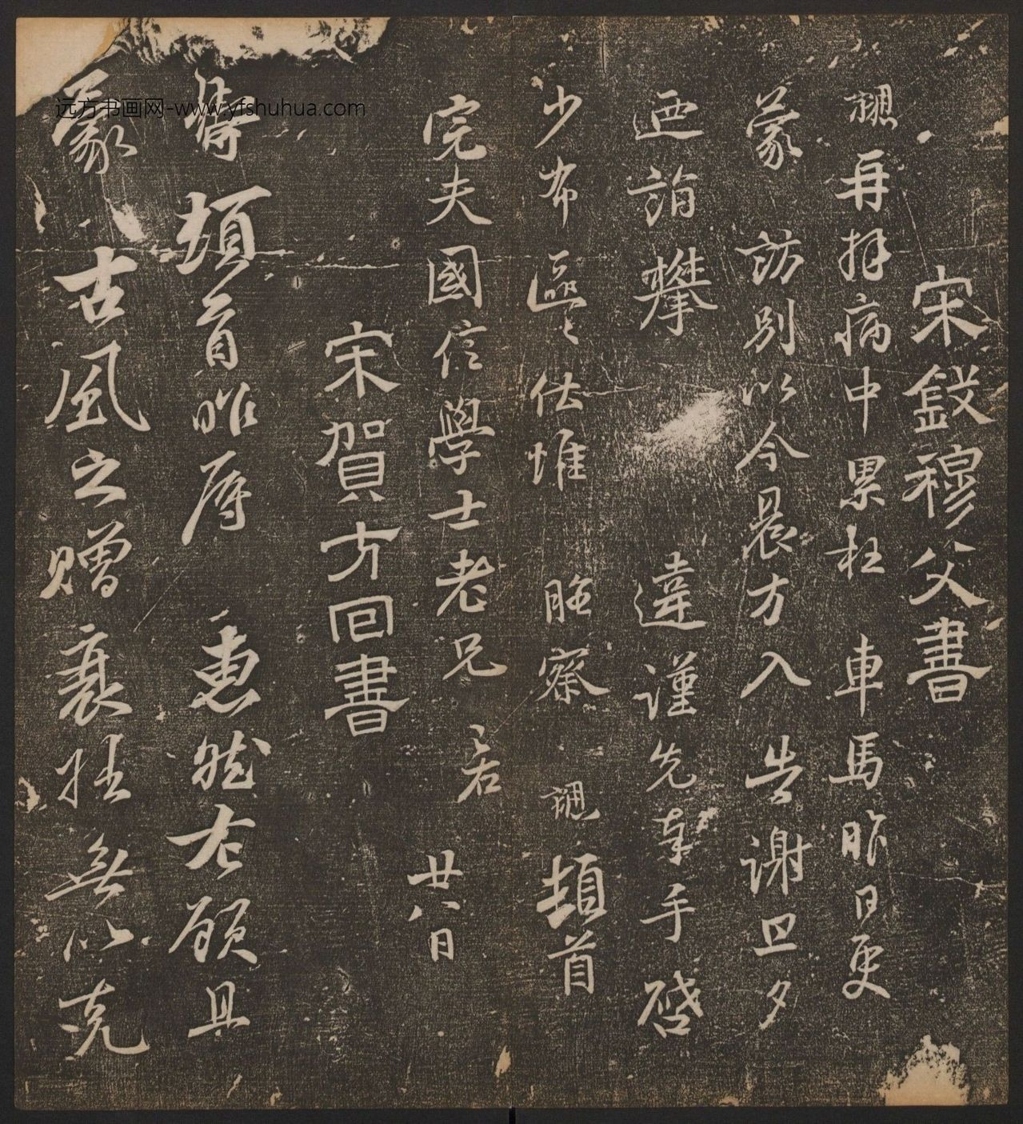 宋錢穆父書
勰再拜病中累枉車馬昨日更
蒙訪別以今晨方入告謝旦夕
迺詣攀違謹先奉手啓
少布區々伏惟眡察勰頓首
完夫國信學士老兄 廿八日
宋賀方回書
鑄頓首昨辱惠然右顧且
蒙古風之贈衰拙無以克
远方书画网-www.yfshuhua.com